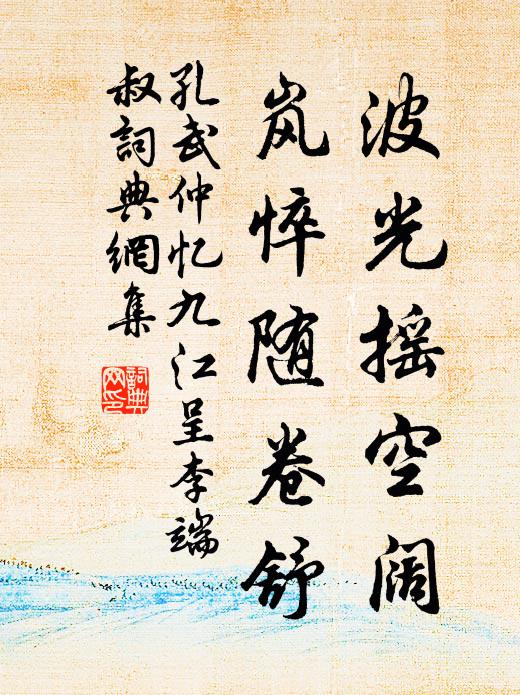 波光摇空阔
岚悴随卷舒
孔武仲忆九江呈李端
叔詞典網集
詞典
网印